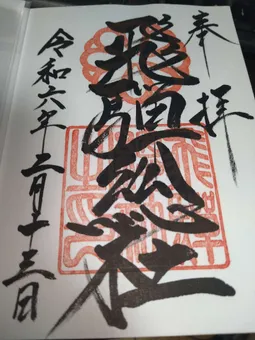 奉拝
飛騨総社
令和六年二月二十三日